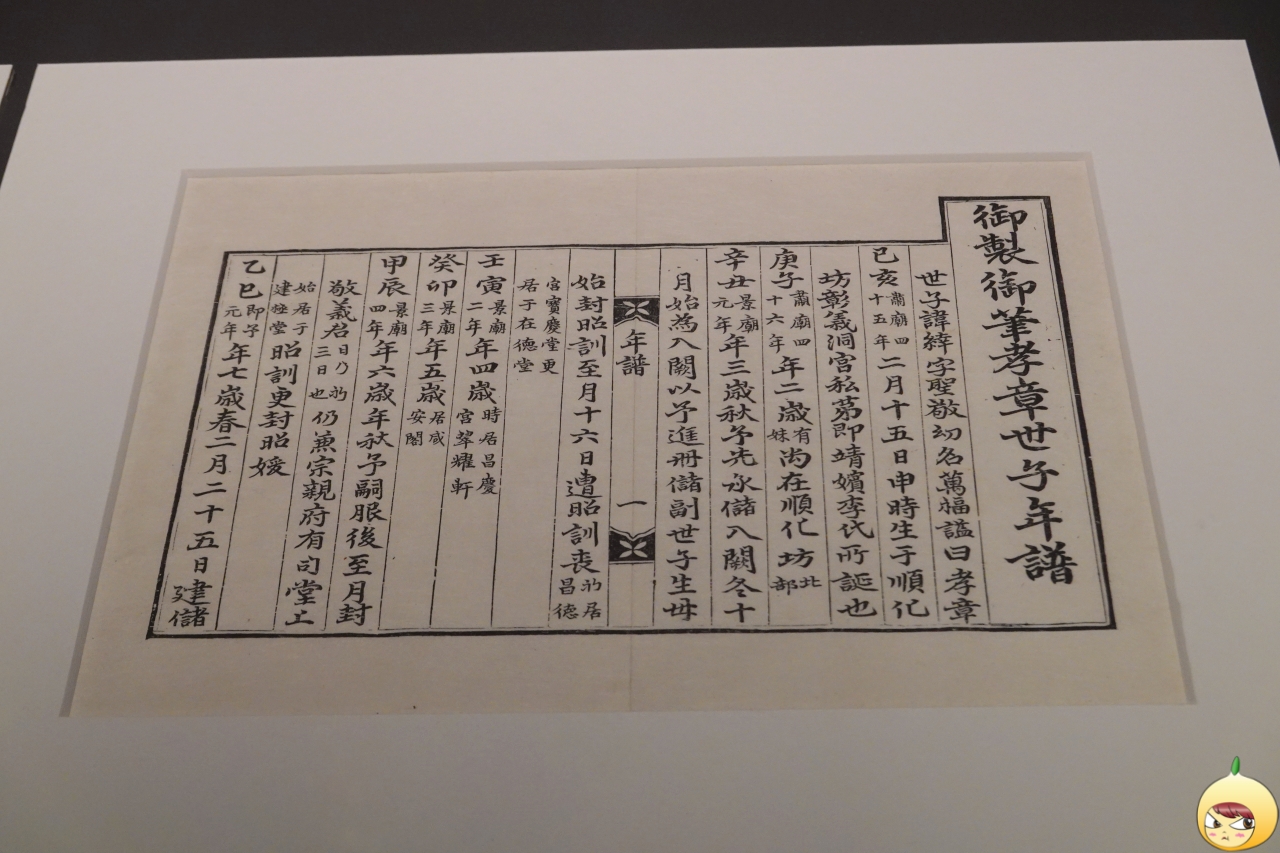 御製御筆孝章世子年譜
世子諱緈字聖敬幼名萬福諡曰孝章
己亥肅廟四十五年二月十五日申時生于順化
坊彰義洞宮私第即靖嬪李氏所誕也
庚子肅廟四十六年年二歲有妹尚在順化坊北部
辛丑景廟元年年三歲秋予先承儲入闕冬十
月始為入闕以予進冊儲副世子生母
年譜 一
始封昭訓至月十六日遭昭訓喪的居昌德
宮寶慶堂更居于在德堂
壬寅景廟二年年四歲時居昌慶宮翠耀軒
癸卯景廟三年年五歲居咸安閣
甲辰景廟四年年六歲年秋予嗣服後至月封
敬義君日乃的三日也仍兼宗親府有司堂上
始居于建極堂昭訓更封昭媛
乙巳即予元年年七歲春二月二十五日建儲